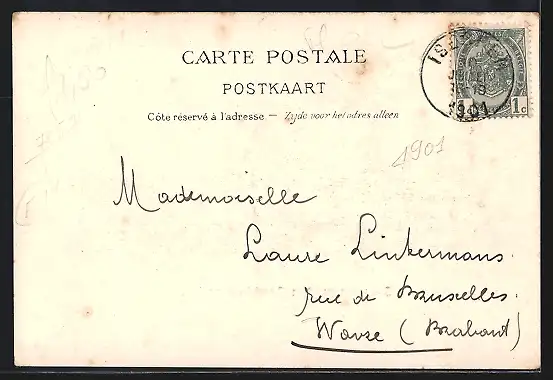 CARTE POSTALE
POSTKAART
Côte réservé à l'adresse — Zijde voor het adres alleen
1 c
1901
1901
Mademoiselle
Laure Linkermans
rue de Bruxelles.
Wavre (Brabant)